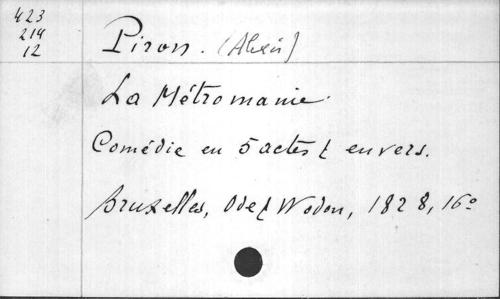 423
214
12
Piron. (Alexis)
La Métromanie.
Comédie en 5 actes & en vers.
Bruxelles, Ode & Wodon, 1828, 16º